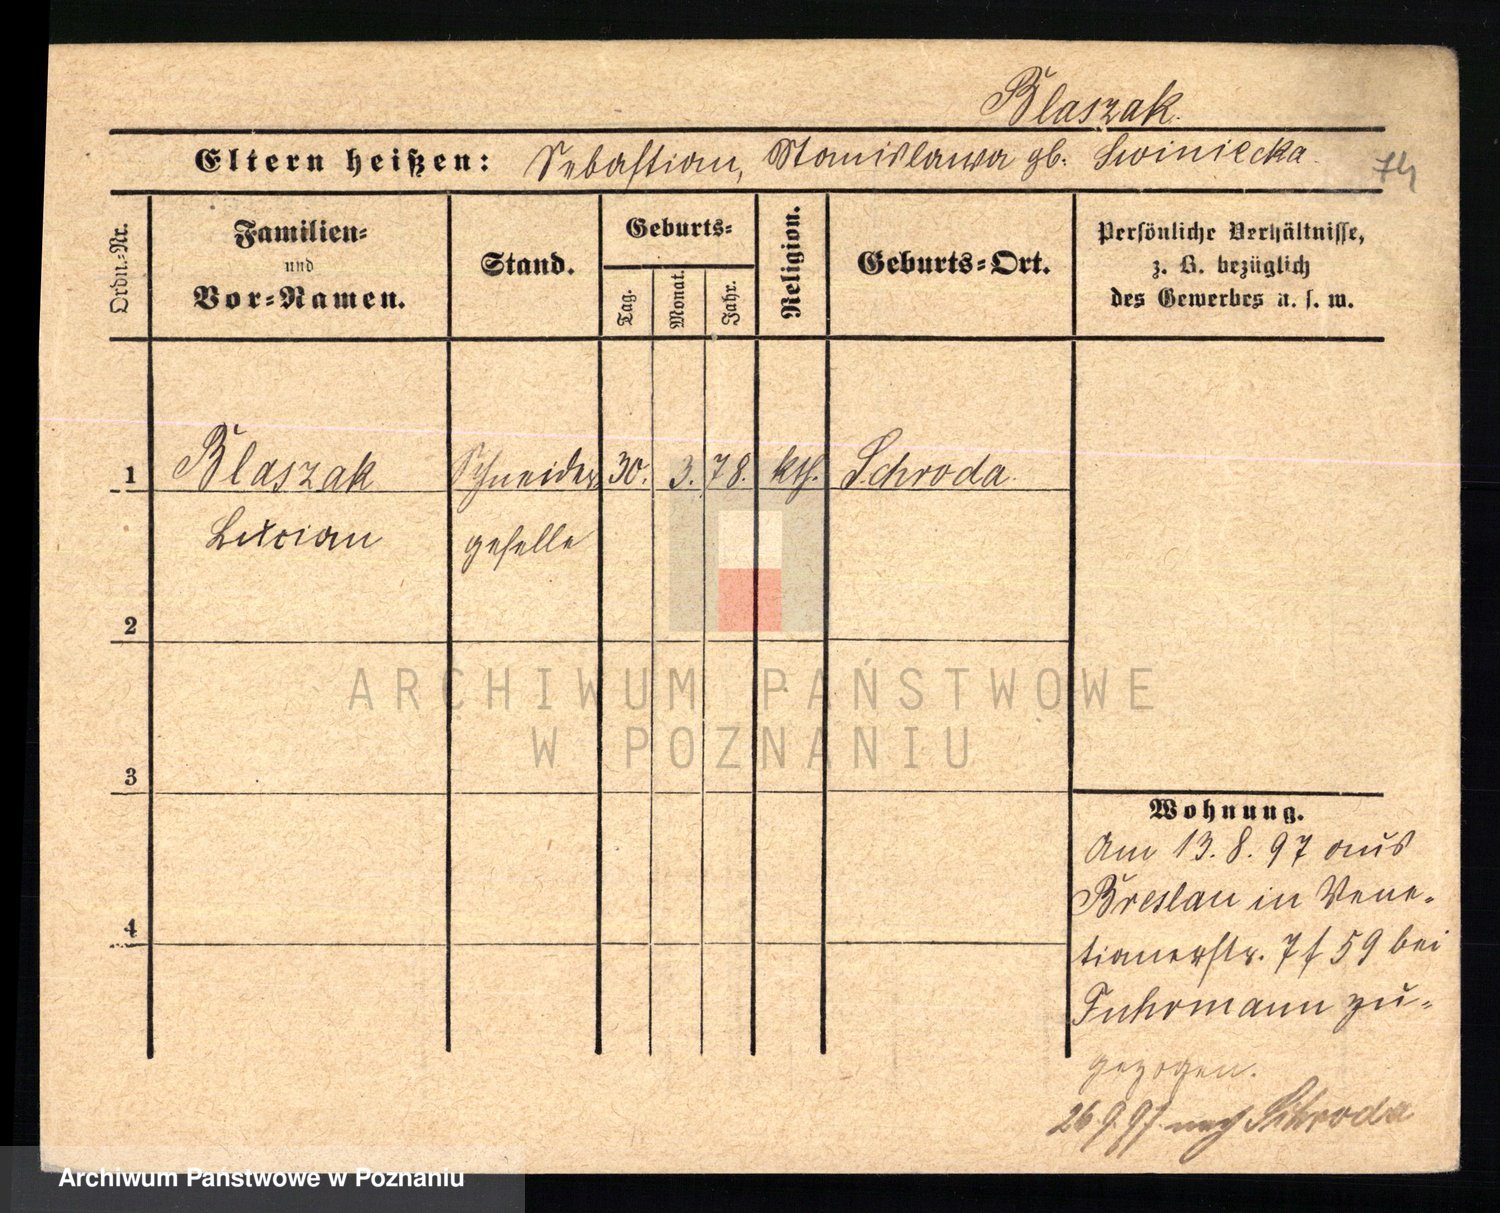 Blaszak.
Eltern heißen: Sebastian, Stanislawa gb. Swiniecka
74
Ordn.-Nr.
Familien-
und
Vor-Namen.
Stand.
Geburts-
Tag.
Monat.
Jahr.
Religion.
Geburts-Ort.
Persönliche Verhältnisse,
z. B. bezüglich
des Gewerbes u. s. w.
1 Blaszak Schneider 30. 3. 78. kth. Schroda.
Lucian geselle
2
3
4
Wohnung.
Am 13. 8. 97 aus
Breslau in Vene-
tianerstr. 7 f 59 bei
Fuhrmann zu-
gezogen.
26.9.97. nach Schroda
ARCHIWUM PAŃSTWOWE
W POZNANIU
Archiwum Państwowe w Poznaniu